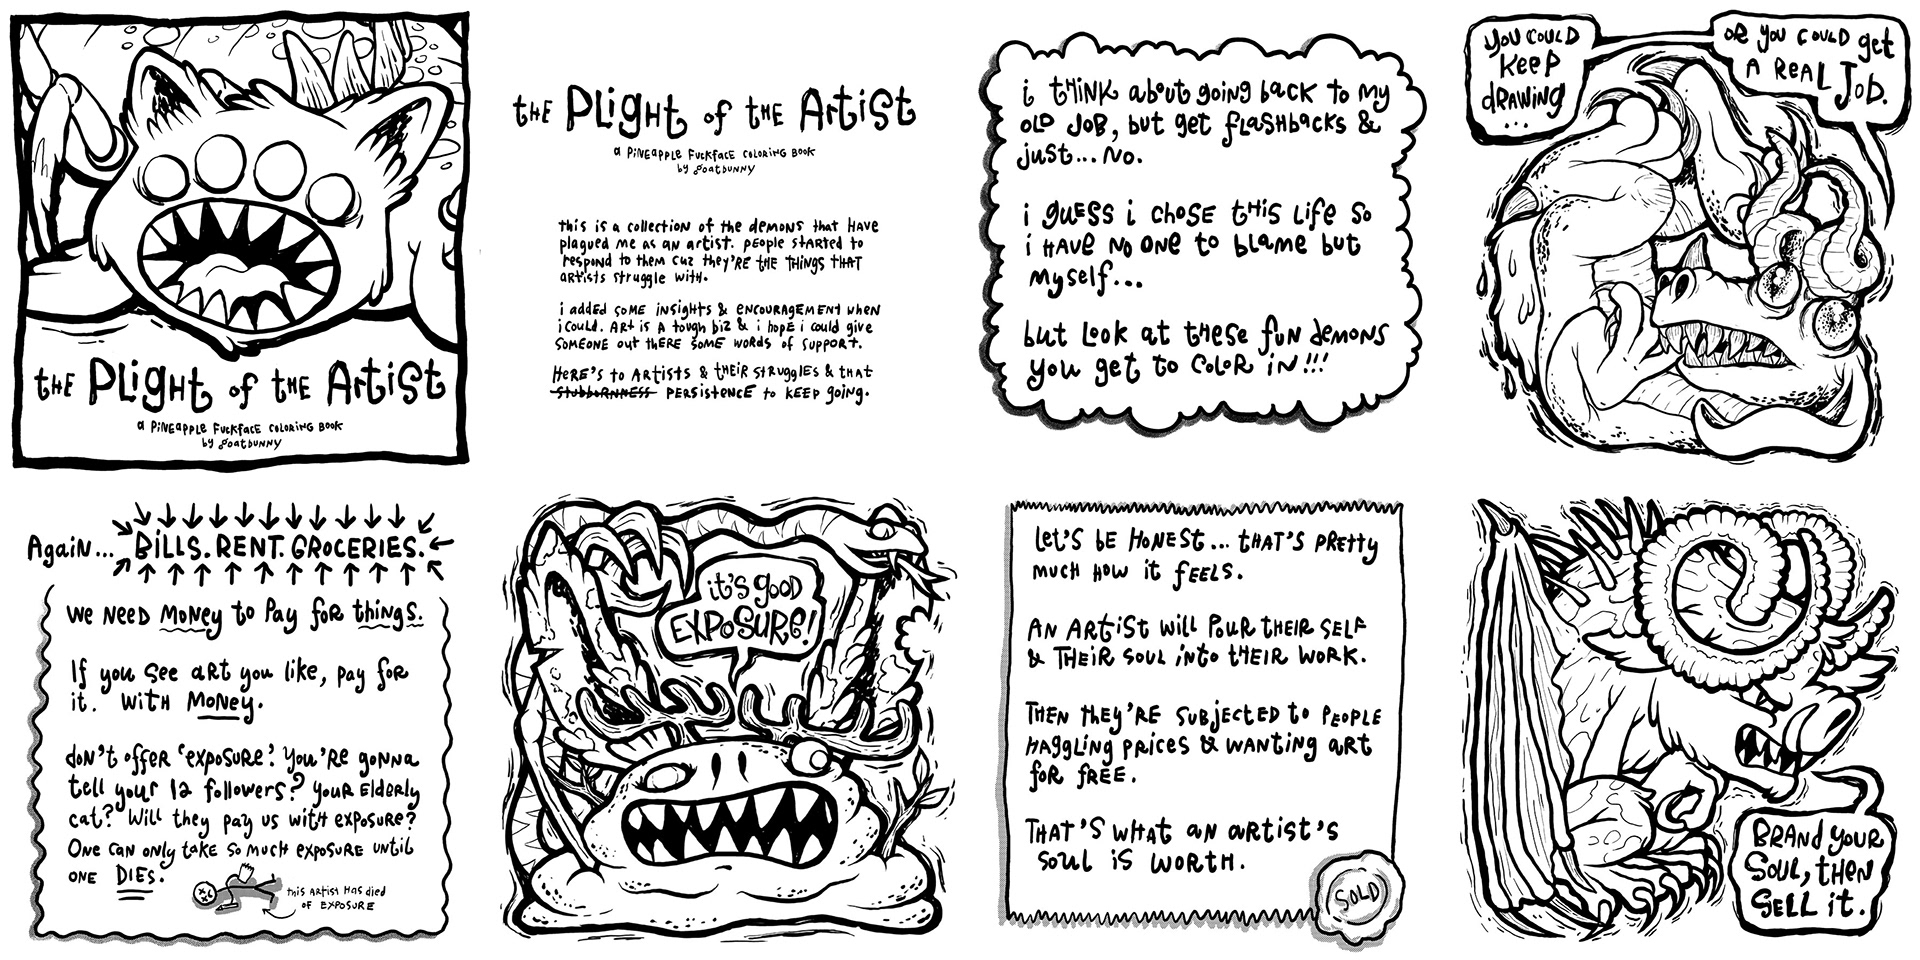 the Plight of the Artist
a Pineapple Fuckface coloring book
by goatbunny
the Plight of the Artist
a Pineapple Fuckface coloring book
by goatbunny
this is a collection of the demons that have
plagued me as an artist. people started to
respond to them cuz they're the things that
artists struggle with.
i added some insights & encouragement when
i could. Art is a tough biz & i hope i could give
someone out there some words of support.
Here's to artists & their struggles & that
stubbornness persistence to keep going.
i think about going back to my
old job, but get flashbacks &
just... no.
i guess i chose this life so
i have no one to blame but
myself...
but look at these fun demons
you get to color in!!!
you could
keep
drawing
...
or you could get
a real job.
Again... Bills. Rent. Groceries.
we need money to pay for things.
If you see art you like, pay for
it. with money.
don't offer 'exposure'. You're gonna
tell your 12 followers? Your elderly
cat? Will they pay us with exposure?
One can only take so much exposure until
one dies.
this artist has died
of exposure
it's good
exposure!
Let's be honest... that's pretty
much how it feels.
An artist will pour their self
& their soul into their work.
Then they're subjected to people
haggling prices & wanting art
for free.
That's what an artist's
soul is worth.
SOLD
Brand your
soul, then
sell it.